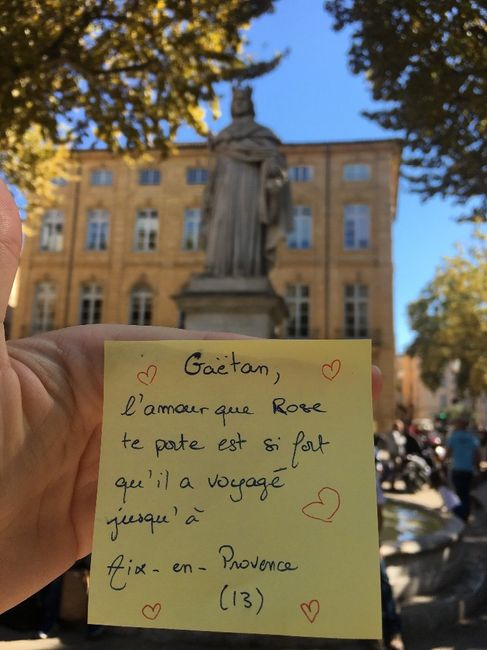 Gaëtan,
l'amour que Rose
te porte est si fort
qu'il a voyagé
jusqu'à
Aix-en-Provence
(13)